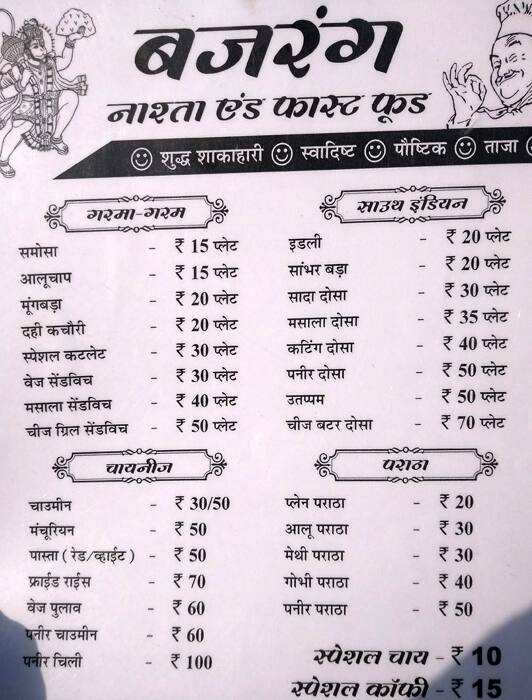 बजरंग
नाश्ता एंड फास्ट फूड
शुद्ध शाकाहारी स्वादिष्ट पौष्टिक ताजा
गरमा-गरम
समोसा - ₹ 15 प्लेट
आलूचाप - ₹ 15 प्लेट
मूंगबड़ा - ₹ 20 प्लेट
दही कचौरी - ₹ 20 प्लेट
स्पेशल कटलेट - ₹ 30 प्लेट
वेज सेंडविच - ₹ 30 प्लेट
मसाला सेंडविच - ₹ 40 प्लेट
चीज ग्रिल सेंडविच - ₹ 50 प्लेट
साउथ इंडियन
इडली - ₹ 20 प्लेट
सांभर बड़ा - ₹ 20 प्लेट
सादा दोसा - ₹ 30 प्लेट
मसाला दोसा - ₹ 35 प्लेट
कटिंग दोसा - ₹ 40 प्लेट
पनीर दोसा - ₹ 50 प्लेट
उतप्पम - ₹ 50 प्लेट
चीज बटर दोसा - ₹ 70 प्लेट
चायनीज
चाउमीन - ₹ 30/50
मंचूरियन - ₹ 50
पास्ता ( रेड/व्हाईट ) - ₹ 50
फ्राईड राईस - ₹ 70
वेज पुलाव - ₹ 60
पनीर चाउमीन - ₹ 60
पनीर चिली - ₹ 100
पराठा
प्लेन पराठा - ₹ 20
आलू पराठा - ₹ 30
मेथी पराठा - ₹ 30
गोभी पराठा - ₹ 40
पनीर पराठा - ₹ 50
स्पेशल चाय - ₹ 10
स्पेशल कॉफी - ₹ 15